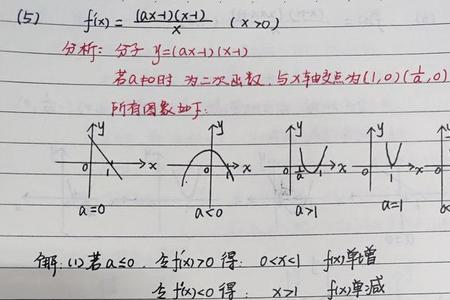 (5) f(x) = (ax-1)(x-1)/x (x>0)
分析: 分子 y=(ax-1)(x-1)
若a≠0时 为二次函数, 与x轴交点为(1,0)(1/a,0)
所有图象如下:
y y y y
0 1 x 0 1 x 0 1/a 1 x 0 1 x
a=0 a<0 a>1 a=1
解: (1)若a≤0. 令f'(x)>0 得: 0<x<1 f(x)单增
令f'(x)<0 得: x>1 f(x)单减